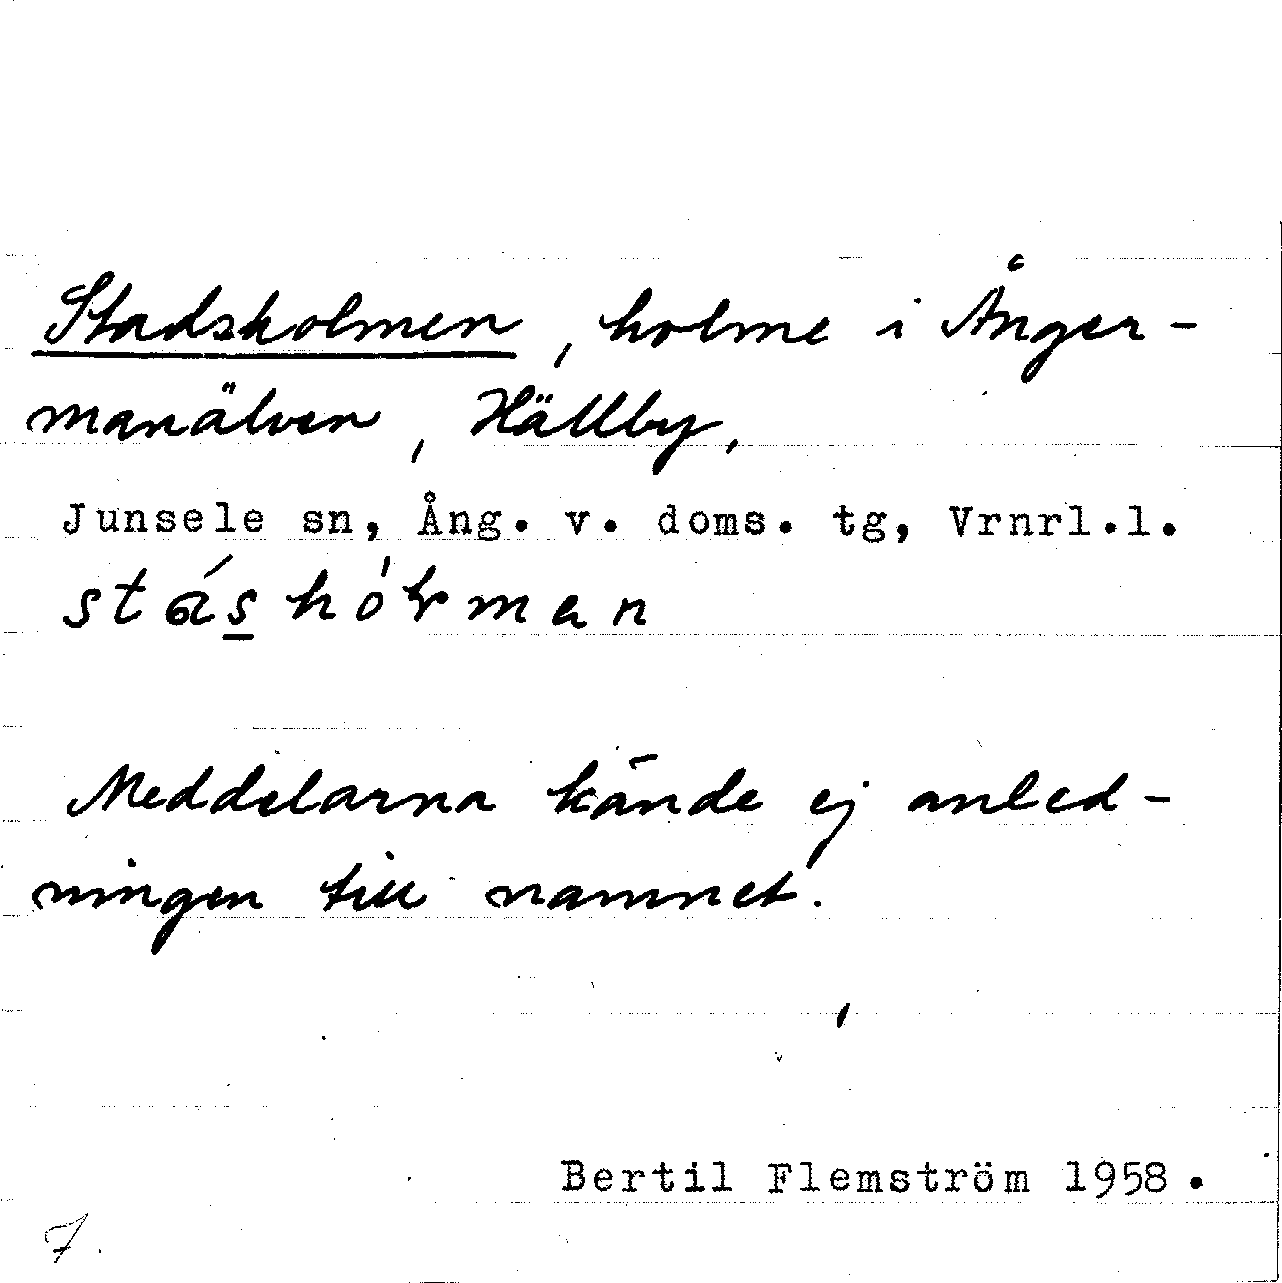 Stadsholmen, holme i Ånger-
manälven, Hällby,
Junsele sn, Ång. v. doms. tg, Vrnrl.l.
Meddelarna kände ej anled-
ningen till namnet.
Bertil Flemström 1958.
7.